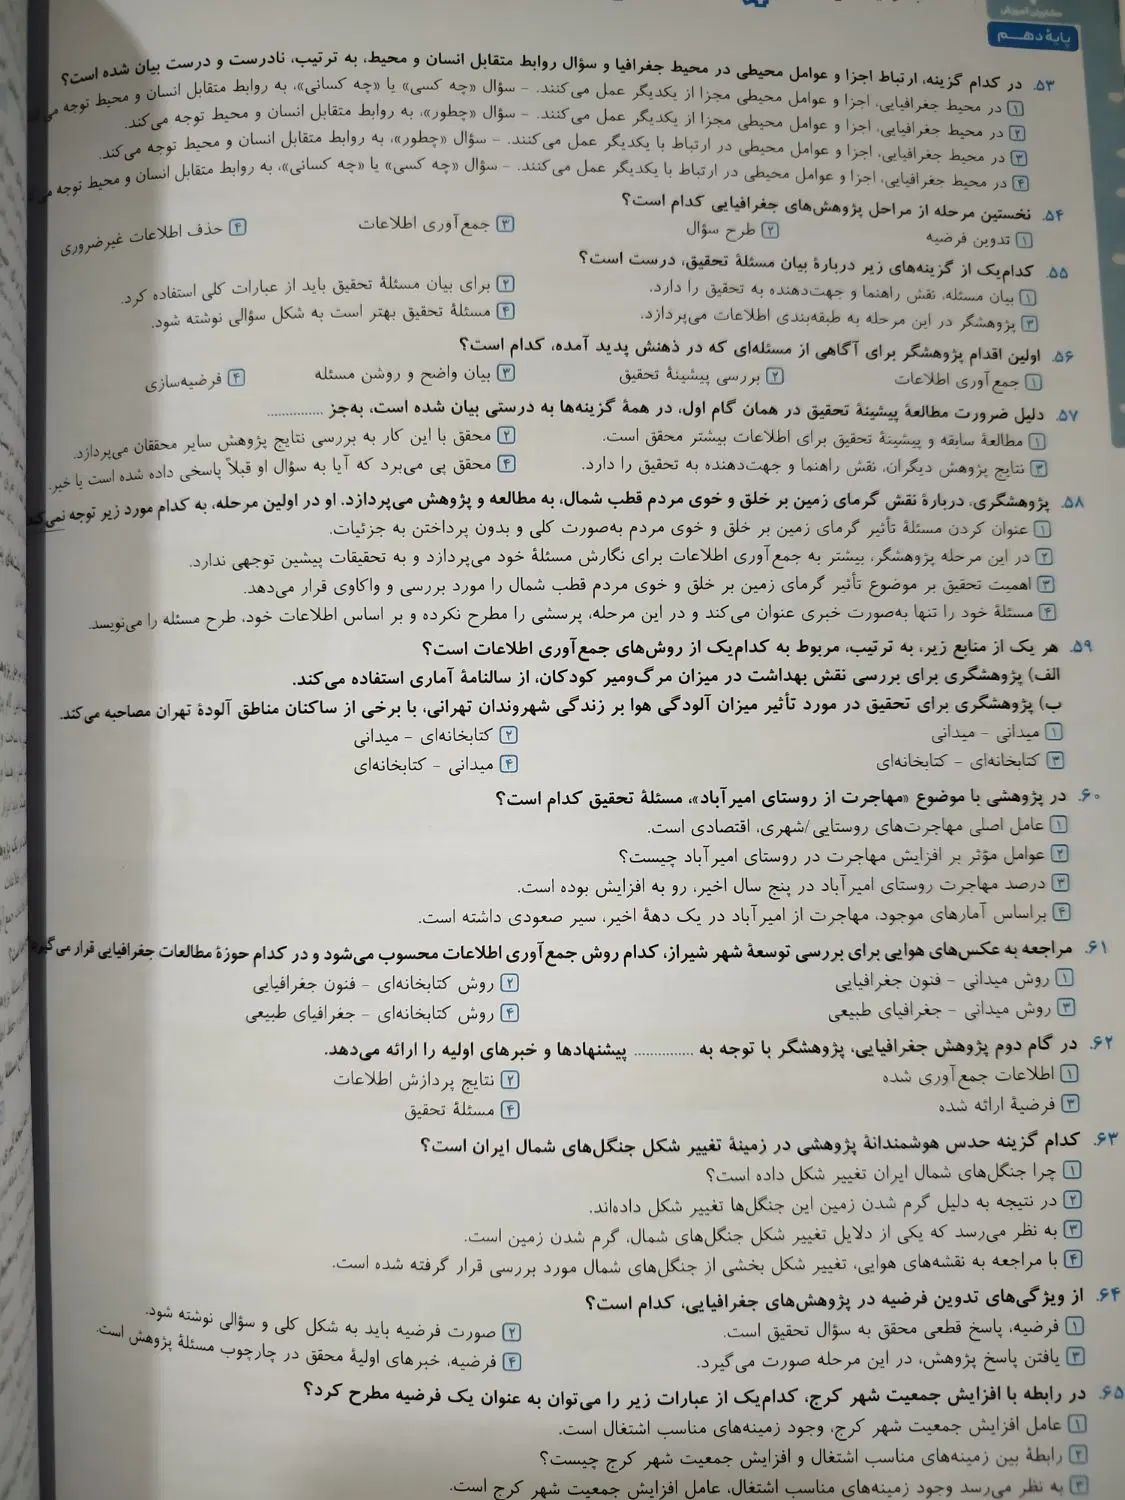 مشاوران آموزش
پایهٔ دهم
۵۳. در کدام گزینه، ارتباط اجزا و عوامل محیطی در محیط جغرافیا و سؤال روابط متقابل انسان و محیط، به ترتیب، نادرست و درست بیان شده است؟
۱ در محیط جغرافیایی، اجزا و عوامل محیطی مجزا از یکدیگر عمل می‌کنند. - سؤال «چه کسی» یا «چه کسانی»، به روابط متقابل انسان و محیط توجه می‌
۲ در محیط جغرافیایی، اجزا و عوامل محیطی مجزا از یکدیگر عمل می‌کنند. - سؤال «چطور»، به روابط متقابل انسان و محیط توجه می‌کند.
۳ در محیط جغرافیایی، اجزا و عوامل محیطی در ارتباط با یکدیگر عمل می‌کنند. - سؤال «چطور»، به روابط متقابل انسان و محیط توجه می‌کند.
۴ در محیط جغرافیایی، اجزا و عوامل محیطی در ارتباط با یکدیگر عمل می‌کنند. - سؤال «چه کسی» یا «چه کسانی»، به روابط متقابل انسان و محیط توجه
۵۴. نخستین مرحله از مراحل پژوهش‌های جغرافیایی کدام است؟
۱ تدوین فرضیه ۲ طرح سؤال ۳ جمع‌آوری اطلاعات ۴ حذف اطلاعات غیرضروری
۵۵. کدام‌یک از گزینه‌های زیر دربارهٔ بیان مسئلهٔ تحقیق، درست است؟
۱ بیان مسئله، نقش راهنما و جهت‌دهنده به تحقیق را دارد. ۲ برای بیان مسئلهٔ تحقیق باید از عبارات کلی استفاده کرد.
۳ پژوهشگر در این مرحله به طبقه‌بندی اطلاعات می‌پردازد. ۴ مسئلهٔ تحقیق بهتر است به شکل سؤالی نوشته شود.
۵۶. اولین اقدام پژوهشگر برای آگاهی از مسئله‌ای که در ذهنش پدید آمده، کدام است؟
۱ جمع‌آوری اطلاعات ۲ بررسی پیشینهٔ تحقیق ۳ بیان واضح و روشن مسئله ۴ فرضیه‌سازی
۵۷. دلیل ضرورت مطالعهٔ پیشینهٔ تحقیق در همان گام اول، در همهٔ گزینه‌ها به درستی بیان شده است، به‌جز ..............
۱ مطالعهٔ سابقه و پیشینهٔ تحقیق برای اطلاعات بیشتر محقق است. ۲ محقق با این کار به بررسی نتایج پژوهش سایر محققان می‌پردازد.
۳ نتایج پژوهش دیگران، نقش راهنما و جهت‌دهنده به تحقیق را دارد. ۴ محقق پی می‌برد که آیا به سؤال او قبلاً پاسخی داده شده است یا خیر.
۵۸. پژوهشگری، دربارهٔ نقش گرمای زمین بر خلق و خوی مردم قطب شمال، به مطالعه و پژوهش می‌پردازد. او در اولین مرحله، به کدام مورد زیر توجه نمی‌کند
۱ عنوان کردن مسئلهٔ تأثیر گرمای زمین بر خلق و خوی مردم به‌صورت کلی و بدون پرداختن به جزئیات.
۲ در این مرحله پژوهشگر، بیشتر به جمع‌آوری اطلاعات برای نگارش مسئلهٔ خود می‌پردازد و به تحقیقات پیشین توجهی ندارد.
۳ اهمیت تحقیق بر موضوع تأثیر گرمای زمین بر خلق و خوی مردم قطب شمال را مورد بررسی و واکاوی قرار می‌دهد.
۴ مسئلهٔ خود را تنها به‌صورت خبری عنوان می‌کند و در این مرحله، پرسشی را مطرح نکرده و بر اساس اطلاعات خود، طرح مسئله را می‌نویسد.
۵۹. هر یک از منابع زیر، به ترتیب، مربوط به کدام‌یک از روش‌های جمع‌آوری اطلاعات است؟
الف) پژوهشگری برای بررسی نقش بهداشت در میزان مرگ‌ومیر کودکان، از سالنامهٔ آماری استفاده می‌کند.
ب) پژوهشگری برای تحقیق در مورد تأثیر میزان آلودگی هوا بر زندگی شهروندان تهرانی، با برخی از ساکنان مناطق آلودهٔ تهران مصاحبه می‌کند.
۱ میدانی - میدانی ۲ کتابخانه‌ای - میدانی
۳ کتابخانه‌ای - کتابخانه‌ای ۴ میدانی - کتابخانه‌ای
۶۰. در پژوهشی با موضوع «مهاجرت از روستای امیرآباد»، مسئلهٔ تحقیق کدام است؟
۱ عامل اصلی مهاجرت‌های روستایی/شهری، اقتصادی است.
۲ عوامل مؤثر بر افزایش مهاجرت در روستای امیرآباد چیست؟
۳ درصد مهاجرت روستای امیرآباد در پنج سال اخیر، رو به افزایش بوده است.
۴ براساس آمارهای موجود، مهاجرت از امیرآباد در یک دههٔ اخیر، سیر صعودی داشته است.
۶۱. مراجعه به عکس‌های هوایی برای بررسی توسعهٔ شهر شیراز، کدام روش جمع‌آوری اطلاعات محسوب می‌شود و در کدام حوزهٔ مطالعات جغرافیایی قرار می‌گیرد؟
۱ روش میدانی - فنون جغرافیایی ۲ روش کتابخانه‌ای - فنون جغرافیایی
۳ روش میدانی - جغرافیای طبیعی ۴ روش کتابخانه‌ای - جغرافیای طبیعی
۶۲. در گام دوم پژوهش جغرافیایی، پژوهشگر با توجه به .............. پیشنهادها و خبرهای اولیه را ارائه می‌دهد.
۱ اطلاعات جمع‌آوری شده ۲ نتایج پردازش اطلاعات
۳ فرضیهٔ ارائه شده ۴ مسئلهٔ تحقیق
۶۳. کدام گزینه حدس هوشمندانهٔ پژوهشی در زمینهٔ تغییر شکل جنگل‌های شمال ایران است؟
۱ چرا جنگل‌های شمال ایران تغییر شکل داده است؟
۲ در نتیجه به دلیل گرم شدن زمین این جنگل‌ها تغییر شکل داده‌اند.
۳ به نظر می‌رسد که یکی از دلایل تغییر شکل جنگل‌های شمال، گرم شدن زمین است.
۴ با مراجعه به نقشه‌های هوایی، تغییر شکل بخشی از جنگل‌های شمال مورد بررسی قرار گرفته شده است.
۶۴. از ویژگی‌های تدوین فرضیه در پژوهش‌های جغرافیایی، کدام است؟
۱ فرضیه، پاسخ قطعی محقق به سؤال تحقیق است. ۲ صورت فرضیه باید به شکل کلی و سؤالی نوشته شود.
۳ یافتن پاسخ پژوهش، در این مرحله صورت می‌گیرد. ۴ فرضیه، خبرهای اولیهٔ محقق در چارچوب مسئلهٔ پژوهش است.
۶۵. در رابطه با افزایش جمعیت شهر کرج، کدام‌یک از عبارات زیر را می‌توان به عنوان یک فرضیه مطرح کرد؟
۱ عامل افزایش جمعیت شهر کرج، وجود زمینه‌های مناسب اشتغال است.
۲ رابطهٔ بین زمینه‌های مناسب اشتغال و افزایش جمعیت شهر کرج چیست؟
۳ به نظر می‌رسد وجود زمینه‌های مناسب اشتغال، عامل افزایش جمعیت شهر کرج است.